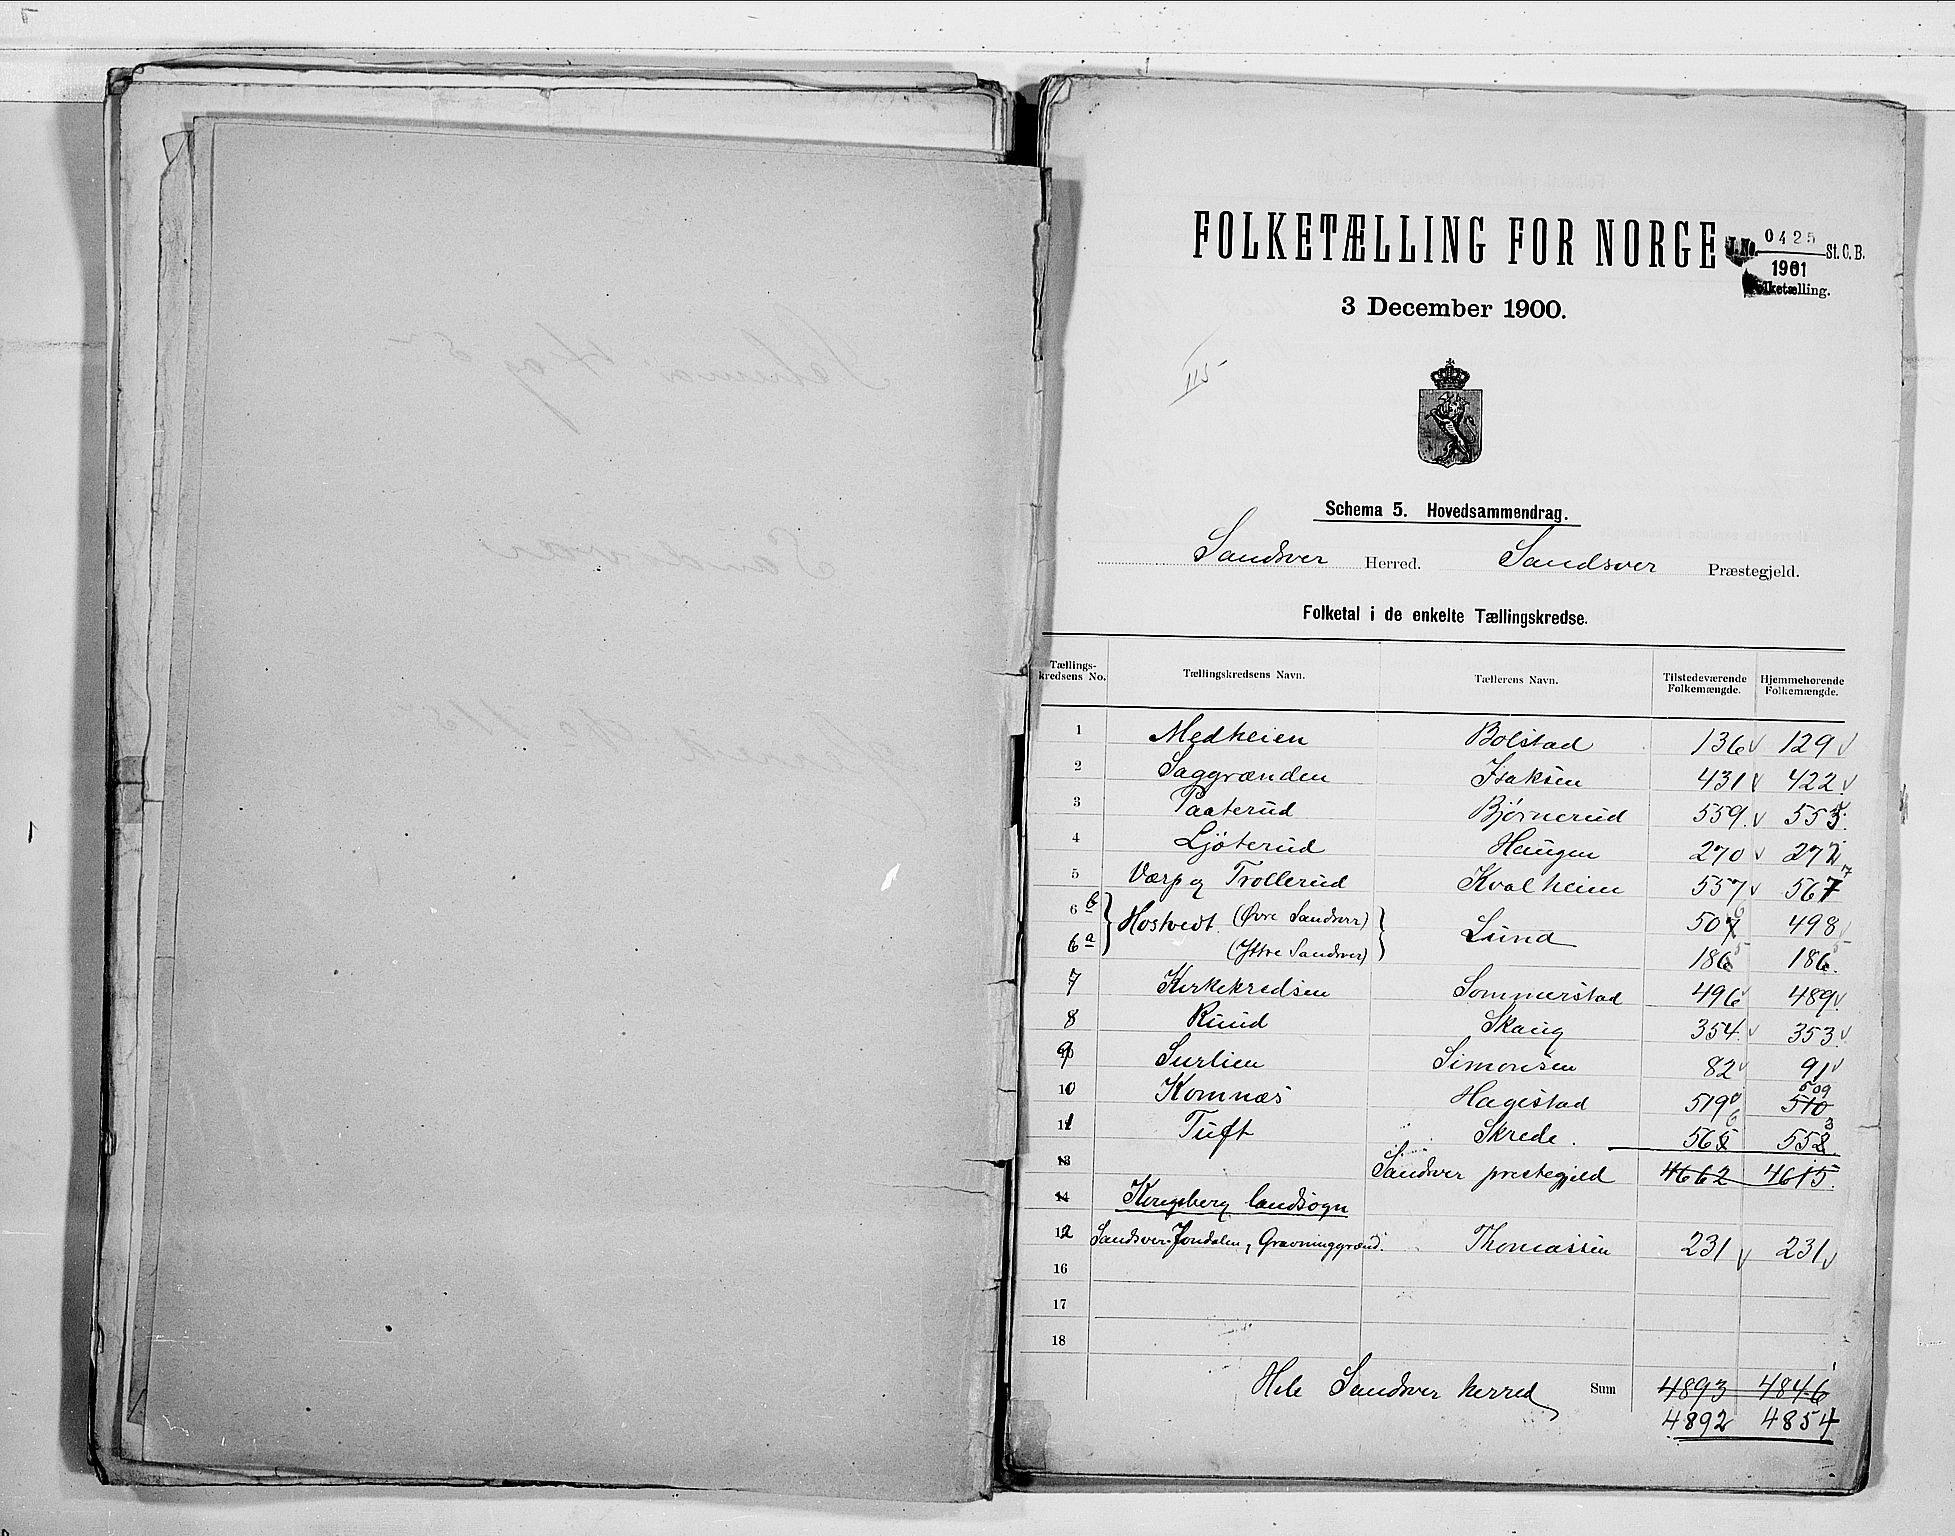 FOLKETÆLLING FOR NORGE
J.No. 0425 St. C. B.
1901
Folketælling.
3 December 1900.
115
Schema 5. Hovedsammendrag.
Sandsver Herred. Sandsver Præstegjeld.
Folketal i de enkelte Tællingskredse.
Tællings-kredsens No. Tællingskredsens Navn. Tællerens Navn. Tilstedeværende Folkemængde. Hjemmehørende Folkemængde.
1 Medheien Bolstad 136 v 129 v
2 Saggrænden Isaksen 431 v 422 v
3 Paaterud Bjørnerud 559 v 553
4 Ljøterud Haugen 270 v 272
5 Værp og Trollerud Kvalheim 557 v 567
6 b Hostvedt (Øvre Sandsver) Lund 507 6 498 v
6 a (Ytre Sandsver) 186 5 186 5
7 Kirkekredsen Sommerstad 496 v 489 v
8 Ruud Skaug 354 v 353 v
9 Surlien Simonsen 82 v 91 v
10 Komnæs Hagestad 519 v 510 509
11 Tuft Skrede. 565 6 552 3
13 Sandsver prestegjeld 4662 4615.
14 Kongsberg landsogn
12 Sandsver-Jondalen, Gravninggrænd. Thomassen 231 v 231 v
16
17
18
Hele Sandsver herred Sum 4893 4846
4892 4854